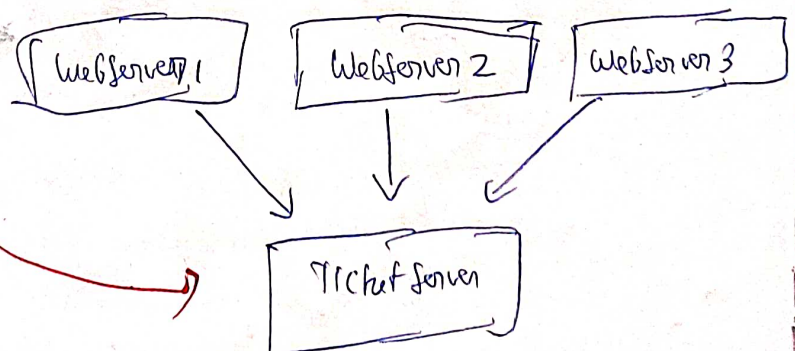 Webserver 1
Webserver 2
Webserver 3
Ticket Server